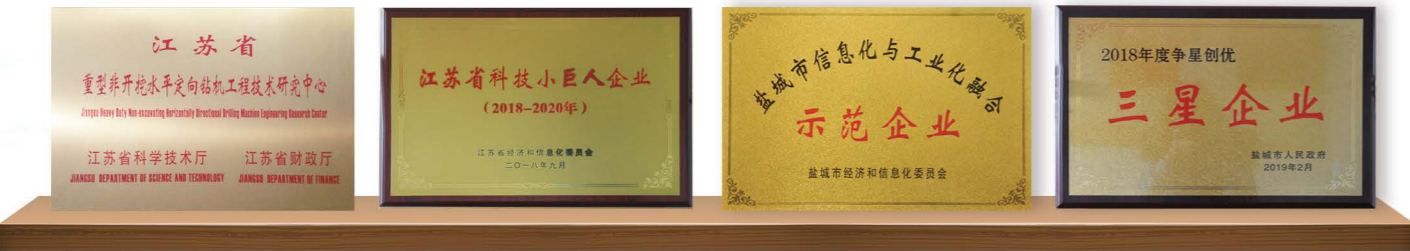 江苏省
重型非开挖水平定向钻机工程技术研究中心
Jiangsu Heavy Duty Non-excavating Horizontally Directional Drilling Machine Engineering Research Center
江苏省科学技术厅 江苏省财政厅
JIANGSU DEPARTMENT OF SCIENCE AND TECHNOLOGY JIANGSU DEPARTMENT OF FINANCE
江苏省科技小巨人企业
(2018-2020年)
江苏省经济和信息化委员会
二〇一八年九月
盐城市信息化与工业化融合
示范企业
盐城市经济和信息化委员会
2018年度争星创优
三星企业
盐城市人民政府
2019年2月